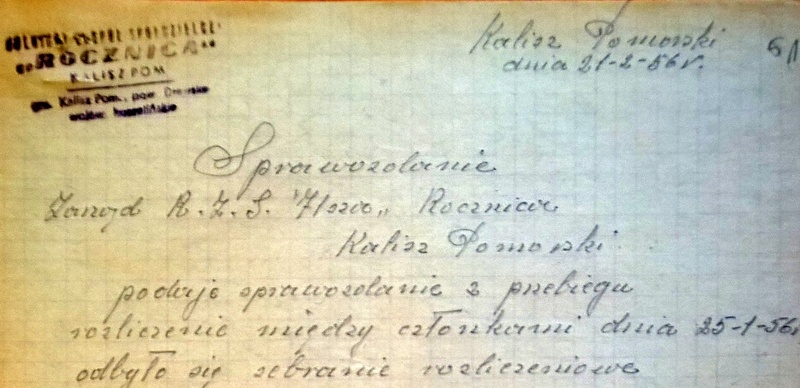 ROCZNICA
KALISZ POM
gm. Kalisz Pom., pow. Drawsko
Kalisz Pomorski
dnia 21-2-56 r.
Sprawozdanie
Zarząd R.Z.S. "7/szo„ Rocznica
Kalisz Pomorski
podaje sprawozdanie z przebiegu
rozliczenie między członkami dnia 25-1-56r
odbyło się zebranie rozliczeniowe